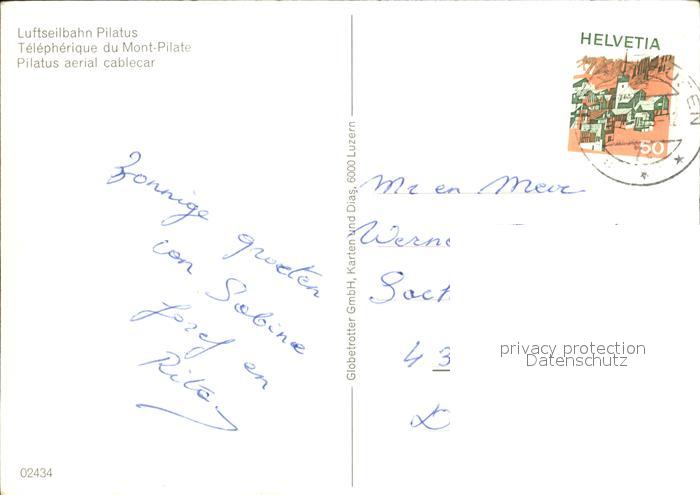 Luftseilbahn Pilatus
Téléphérique du Mont-Pilate
Pilatus aerial cablecar
HELVETIA
50
Zonnige
groeten
van Sabine
Jozef en
Rita
Globetrotter GmbH, Karten und Dias, 6000 Luzern
Mr en Mevr
Werne
43
privacy protection
Datenschutz
02434